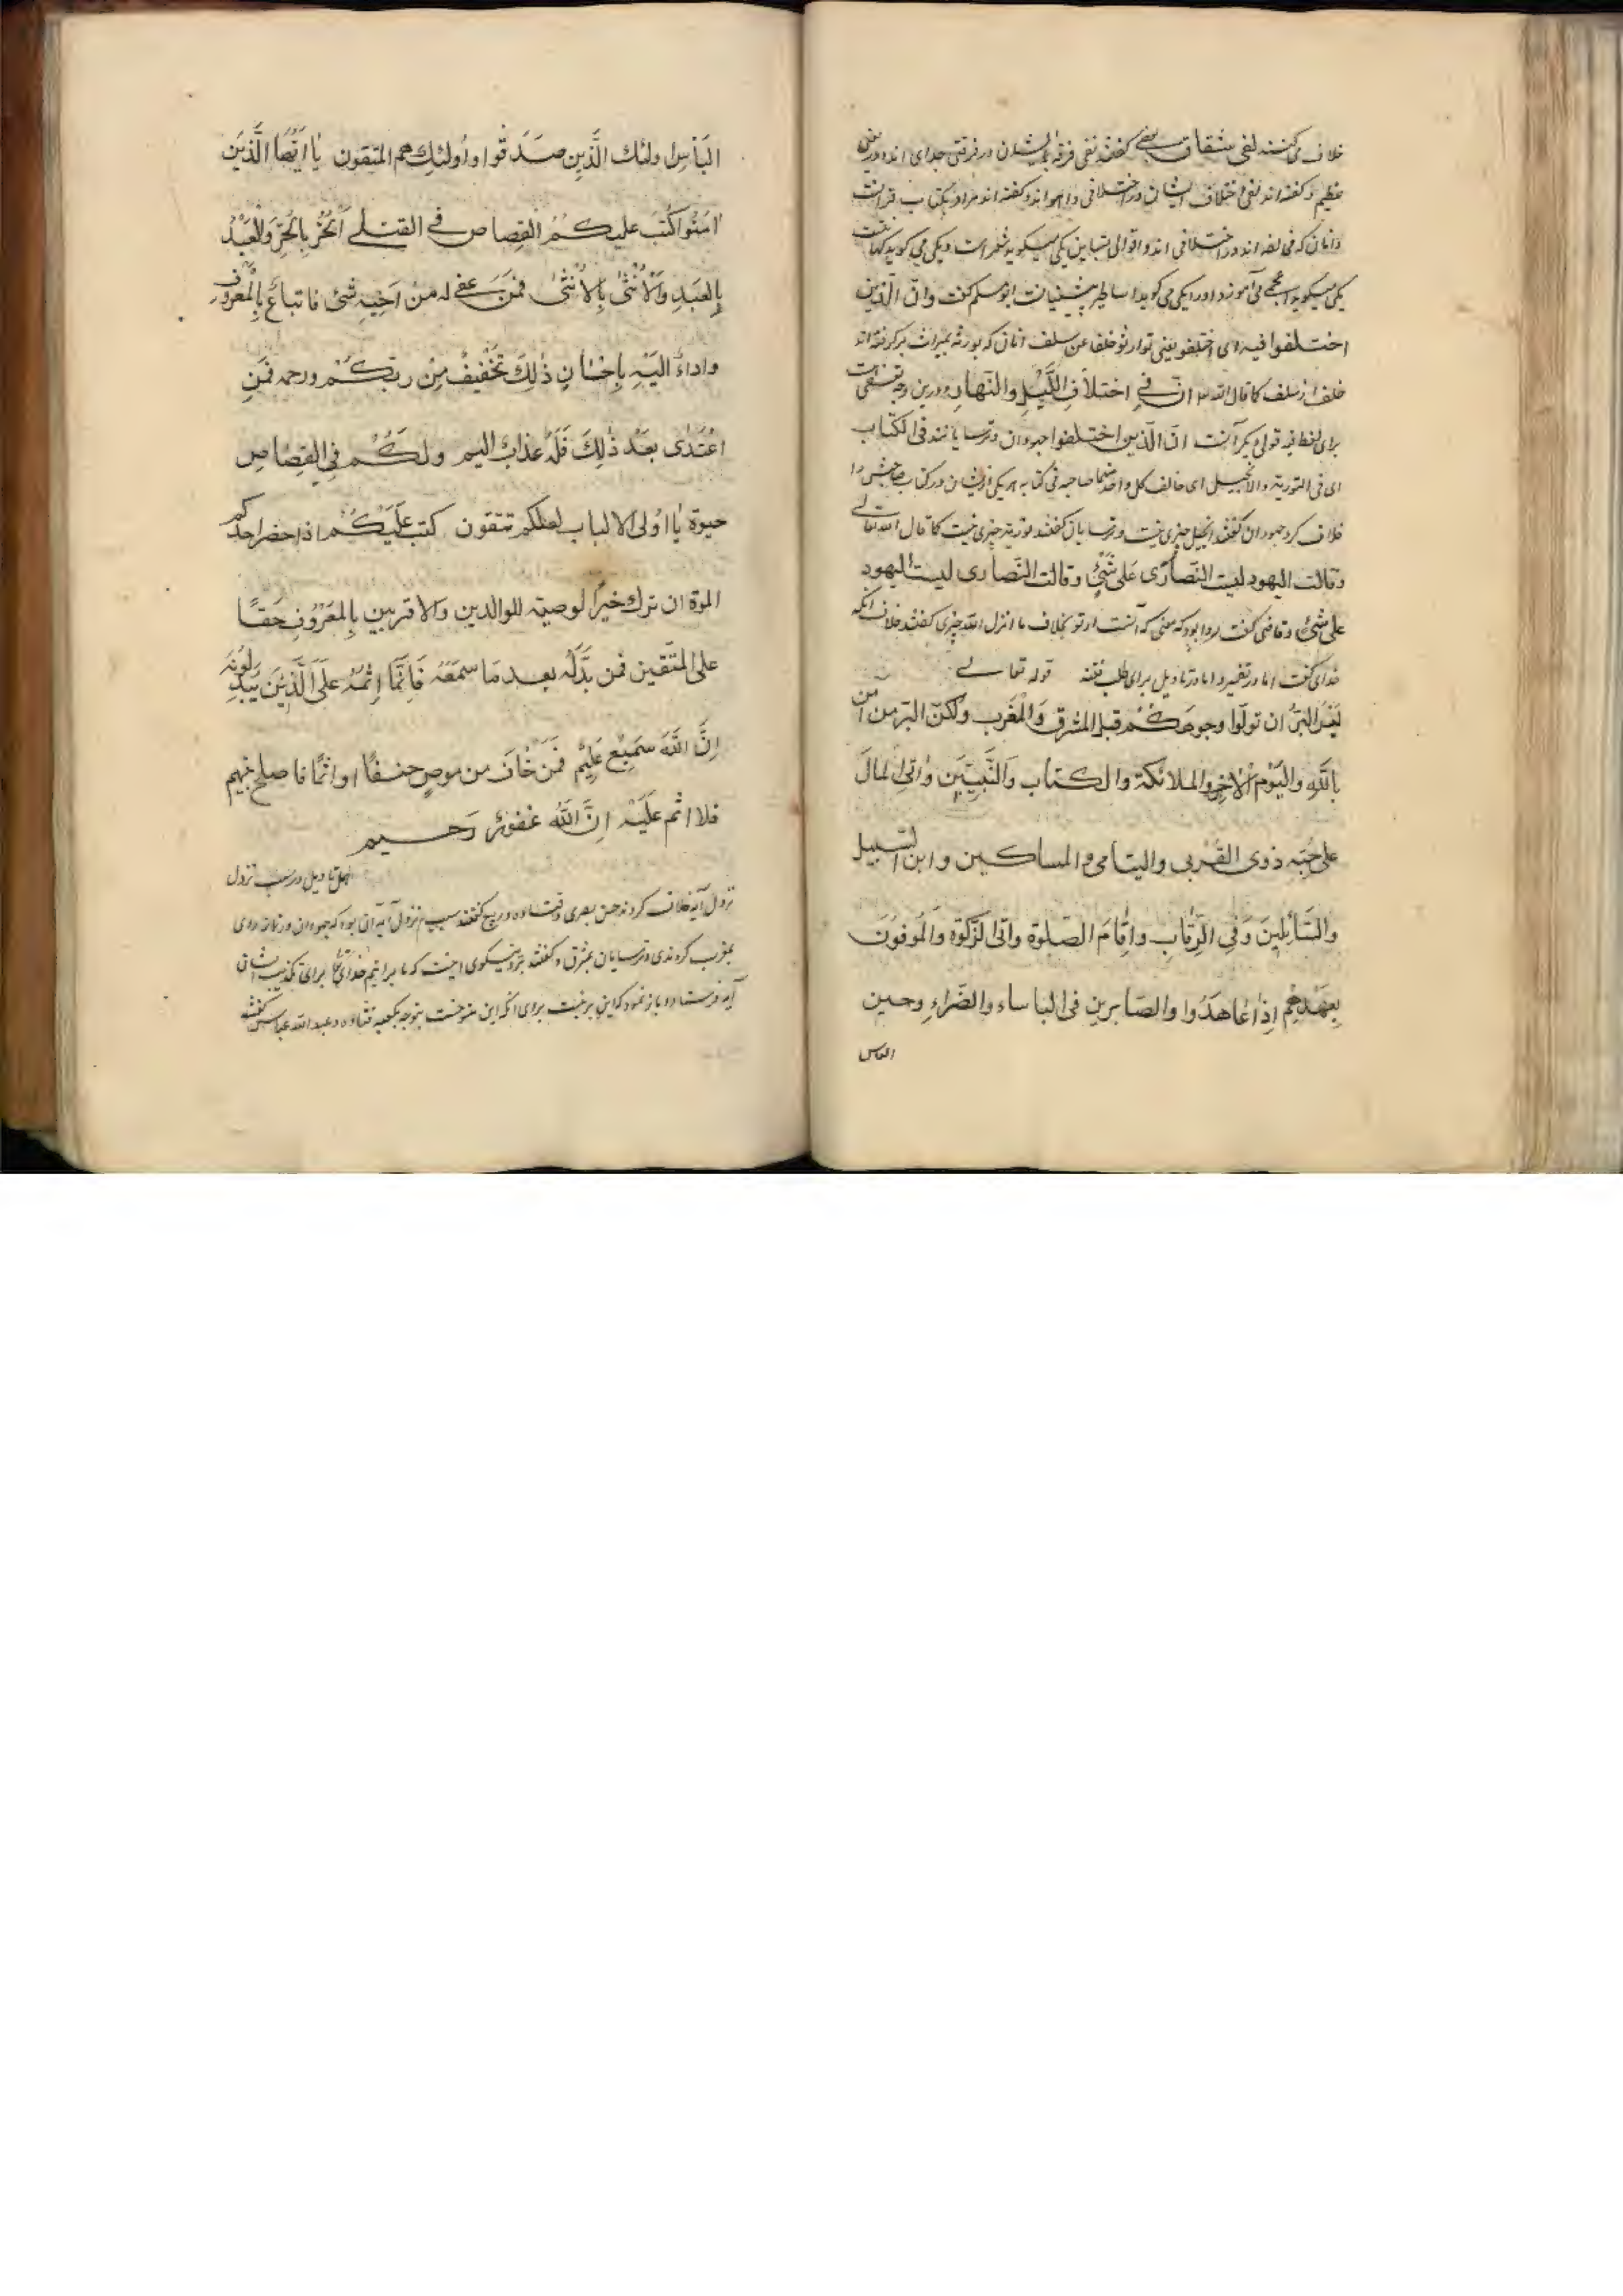 خلاف می کنند لفی شقاق بعید گفتند یعنی فرقه ایشان در فرقتی جدای اند و در
عظیم و گفته اند یعنی اختلاف ایشان در اختلافی و اهو اند و گفته اند مراد بکتاب قرآنست
و آنان که فی لفه اند در اختلافی اند و اقوالی متباین یکی میگوید شعر است و یکی می گوید کهانتست
یکی میگوید اعجمی می آموزد او را یکی می گوید اساطیر پیشینیانست ابو مسلم گفت وان الذین
اختلفوا فیه ای اختلفوا یعنی توارثو خلفا عن سلف آنان که بورثه بمیراث برگرفته اند
خلف از سلف کما قال الله ان فی اختلاف اللیل والنهار و درین وجه
برای لفظ فیه قولی دیگر آنست ان الذین اختلفوا جهودان و ترسایانند فی الکتاب
ای فی التوریة والانجیل ای خالف کل واحد منهما صاحبه فی کتابه هر یکی ازیشان در کتاب صاحبش را
خلاف کرد جهودان گفتند انجیل چیزی نیست و ترسایان گفتند توریة چیزی نیست کما قال الله تعالی
وقالت الیهود لیست النصاری علی شئ وقالت النصاری لیست الیهود
علی شئ و قاضی گفت روا بود که معنی که آنست ارتو بخلاف ما انزل الله چیزی گفتند خلاف آنکه
خدای گفت اما در تفسیر و اما در تاویل برای طلب فتنه قوله تعالی
لیس البر ان تولوا وجوهکم قبل المشرق والمغرب ولکن البر من آمن
بالله والیوم الاخر والملائکة والکتاب والنبیین واتی المال
علی حبه ذوی القربی والیتامی والمساکین وابن السبیل
والسائلین وفی الرقاب واقام الصلوة واتی الزکوة والموفون
بعهدهم اذا عاهدوا والصابرین فی الباساء والضراء وحین
الباس
الباس اولئك الذین صدقوا واولئك هم المتقون یا ایها الذین
امنوا کتب علیکم القصاص فی القتلی الحر بالحر والعبد
بالعبد والانثی بالانثی فمن عفی له من اخیه شئ فاتباع بالمعروف
واداء الیه باحسان ذلك تخفیف من ربکم ورحمه فمن
اعتدی بعد ذلك فله عذاب الیم ولکم فی القصاص
حیوة یا اولی الالباب لعلکم تتقون کتب علیکم اذا حضر احدکم
الموة ان ترك خیرا لوصیة للوالدین والاقربین بالمعروف حقا
علی المتقین فمن بدله بعد ما سمعه فانما اثمه علی الذین یبدلونه
ان الله سمیع علیم فمن خاف من موص جنفا او اثما فاصلح بینهم
فلا اثم علیه ان الله غفور رحیم
اهل تاویل در سبب نزول
نزول آیه خلاف کردند حسن بصری و قتاده و ربیع گفتند سبب نزول آیه آن بود که جهودان در نماز روی
بمغرب کردندی و ترسایان بمشرق و گفتند بر و نیکوی اینست که ما برانیم خدای تعالی برای تکذیب ایشان
آیه فرستاد و باز نمود که این بر نیست برای آنکه این منسوخست بتوجه بکعبه قتاده و عبد الله عباس گفتند